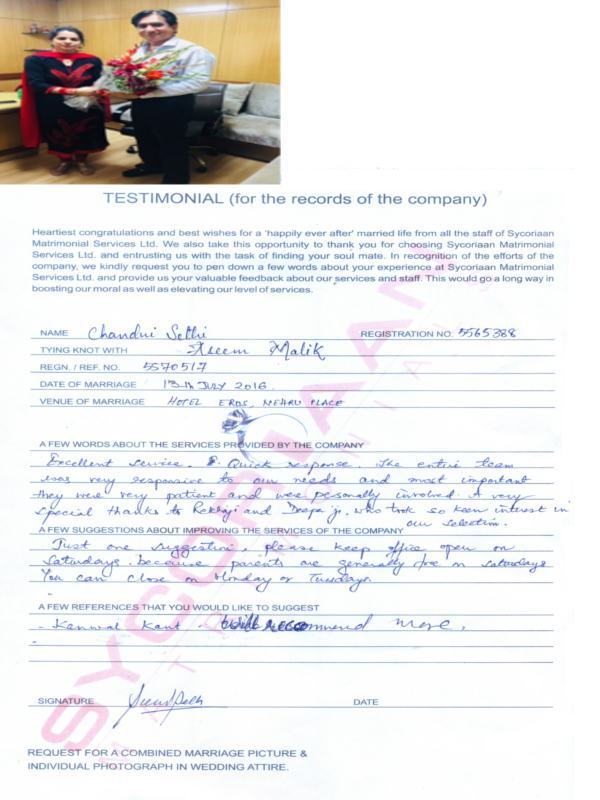 TESTIMONIAL (for the records of the company)
Heartiest congratulations and best wishes for a 'happily ever after' married life from all the staff of Sycoriaan
Matrimonial Services Ltd. We also take this opportunity to thank you for choosing Sycoriaan Matrimonial
Services Ltd. and entrusting us with the task of finding your soul mate. In recognition of the efforts of the
company, we kindly request you to pen down a few words about your experience at Sycoriaan Matrimonial
Services Ltd. and provide us your valuable feedback about our services and staff. This would go a long way in
boosting our moral as well as elevating our level of services.
NAME Chandni Sethi REGISTRATION NO. 5565388
TYING KNOT WITH Aseem Malik
REGN. / REF. NO. 5570517
DATE OF MARRIAGE 13th JULY 2016
VENUE OF MARRIAGE HOTEL EROS, NEHRU PLACE
A FEW WORDS ABOUT THE SERVICES PROVIDED BY THE COMPANY
Excellent service. Quick response. The entire team
was very responsive to our needs and most important
they were very patient and were personally involved. A very
special thanks to and Deepa ji, who took so keen interest in
our selection.
A FEW SUGGESTIONS ABOUT IMPROVING THE SERVICES OF THE COMPANY
Just one suggestion, please keep office open on
Saturdays because parents are generally free on saturdays
You can close on Monday or Tuesdays
A FEW REFERENCES THAT YOU WOULD LIKE TO SUGGEST
- Kanwal Kant - Will recommend more.
-
SIGNATURE DATE
REQUEST FOR A COMBINED MARRIAGE PICTURE &
INDIVIDUAL PHOTOGRAPH IN WEDDING ATTIRE.
SYCORIAAN
MATRIMONIAL